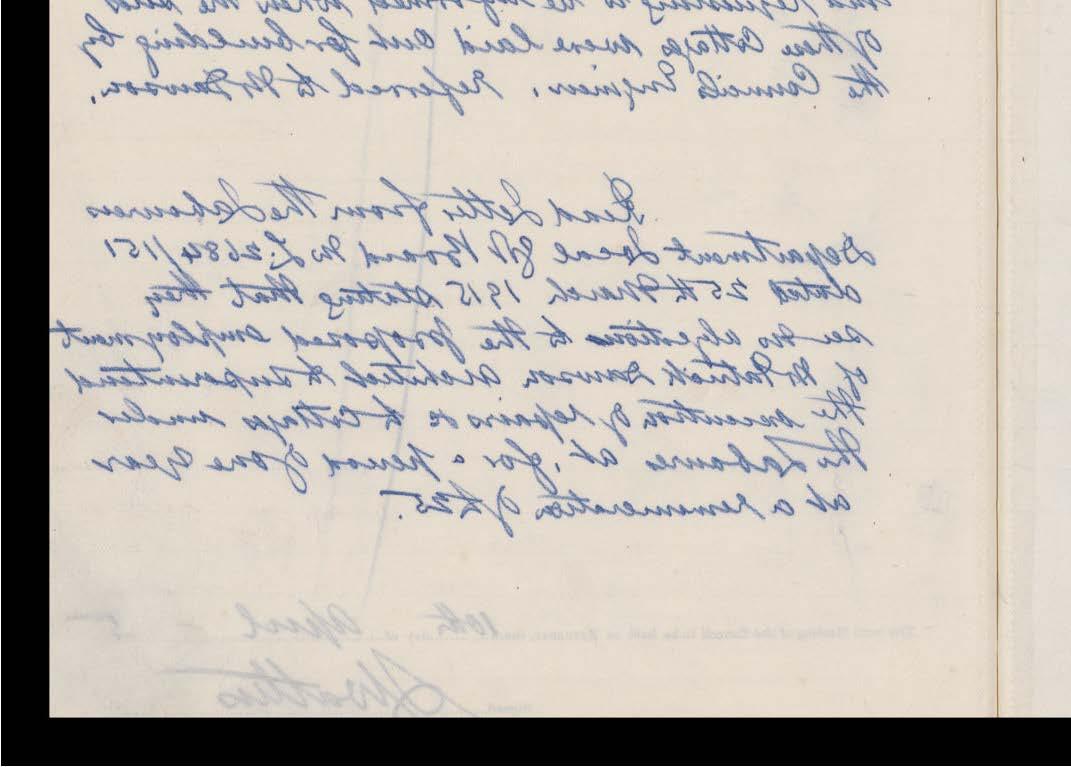 and requesting to be informed when the said
of these Cottages were laid out for building by
the Councils Engineer. Referred to Mr Dawson.
Read Letter from the Labourers
Department Local Gt Board No L. 2684/151
dated 25th March 1915 stating that they
see no objection to the proposed employment
of Mr Patrick Dawson Architect to superintend
the execution of repairs to Cottages under
the Labourers Act, for a period of one year
at a remuneration of £25.
The next Meeting of the Council to be held on 10th April 5
Signed